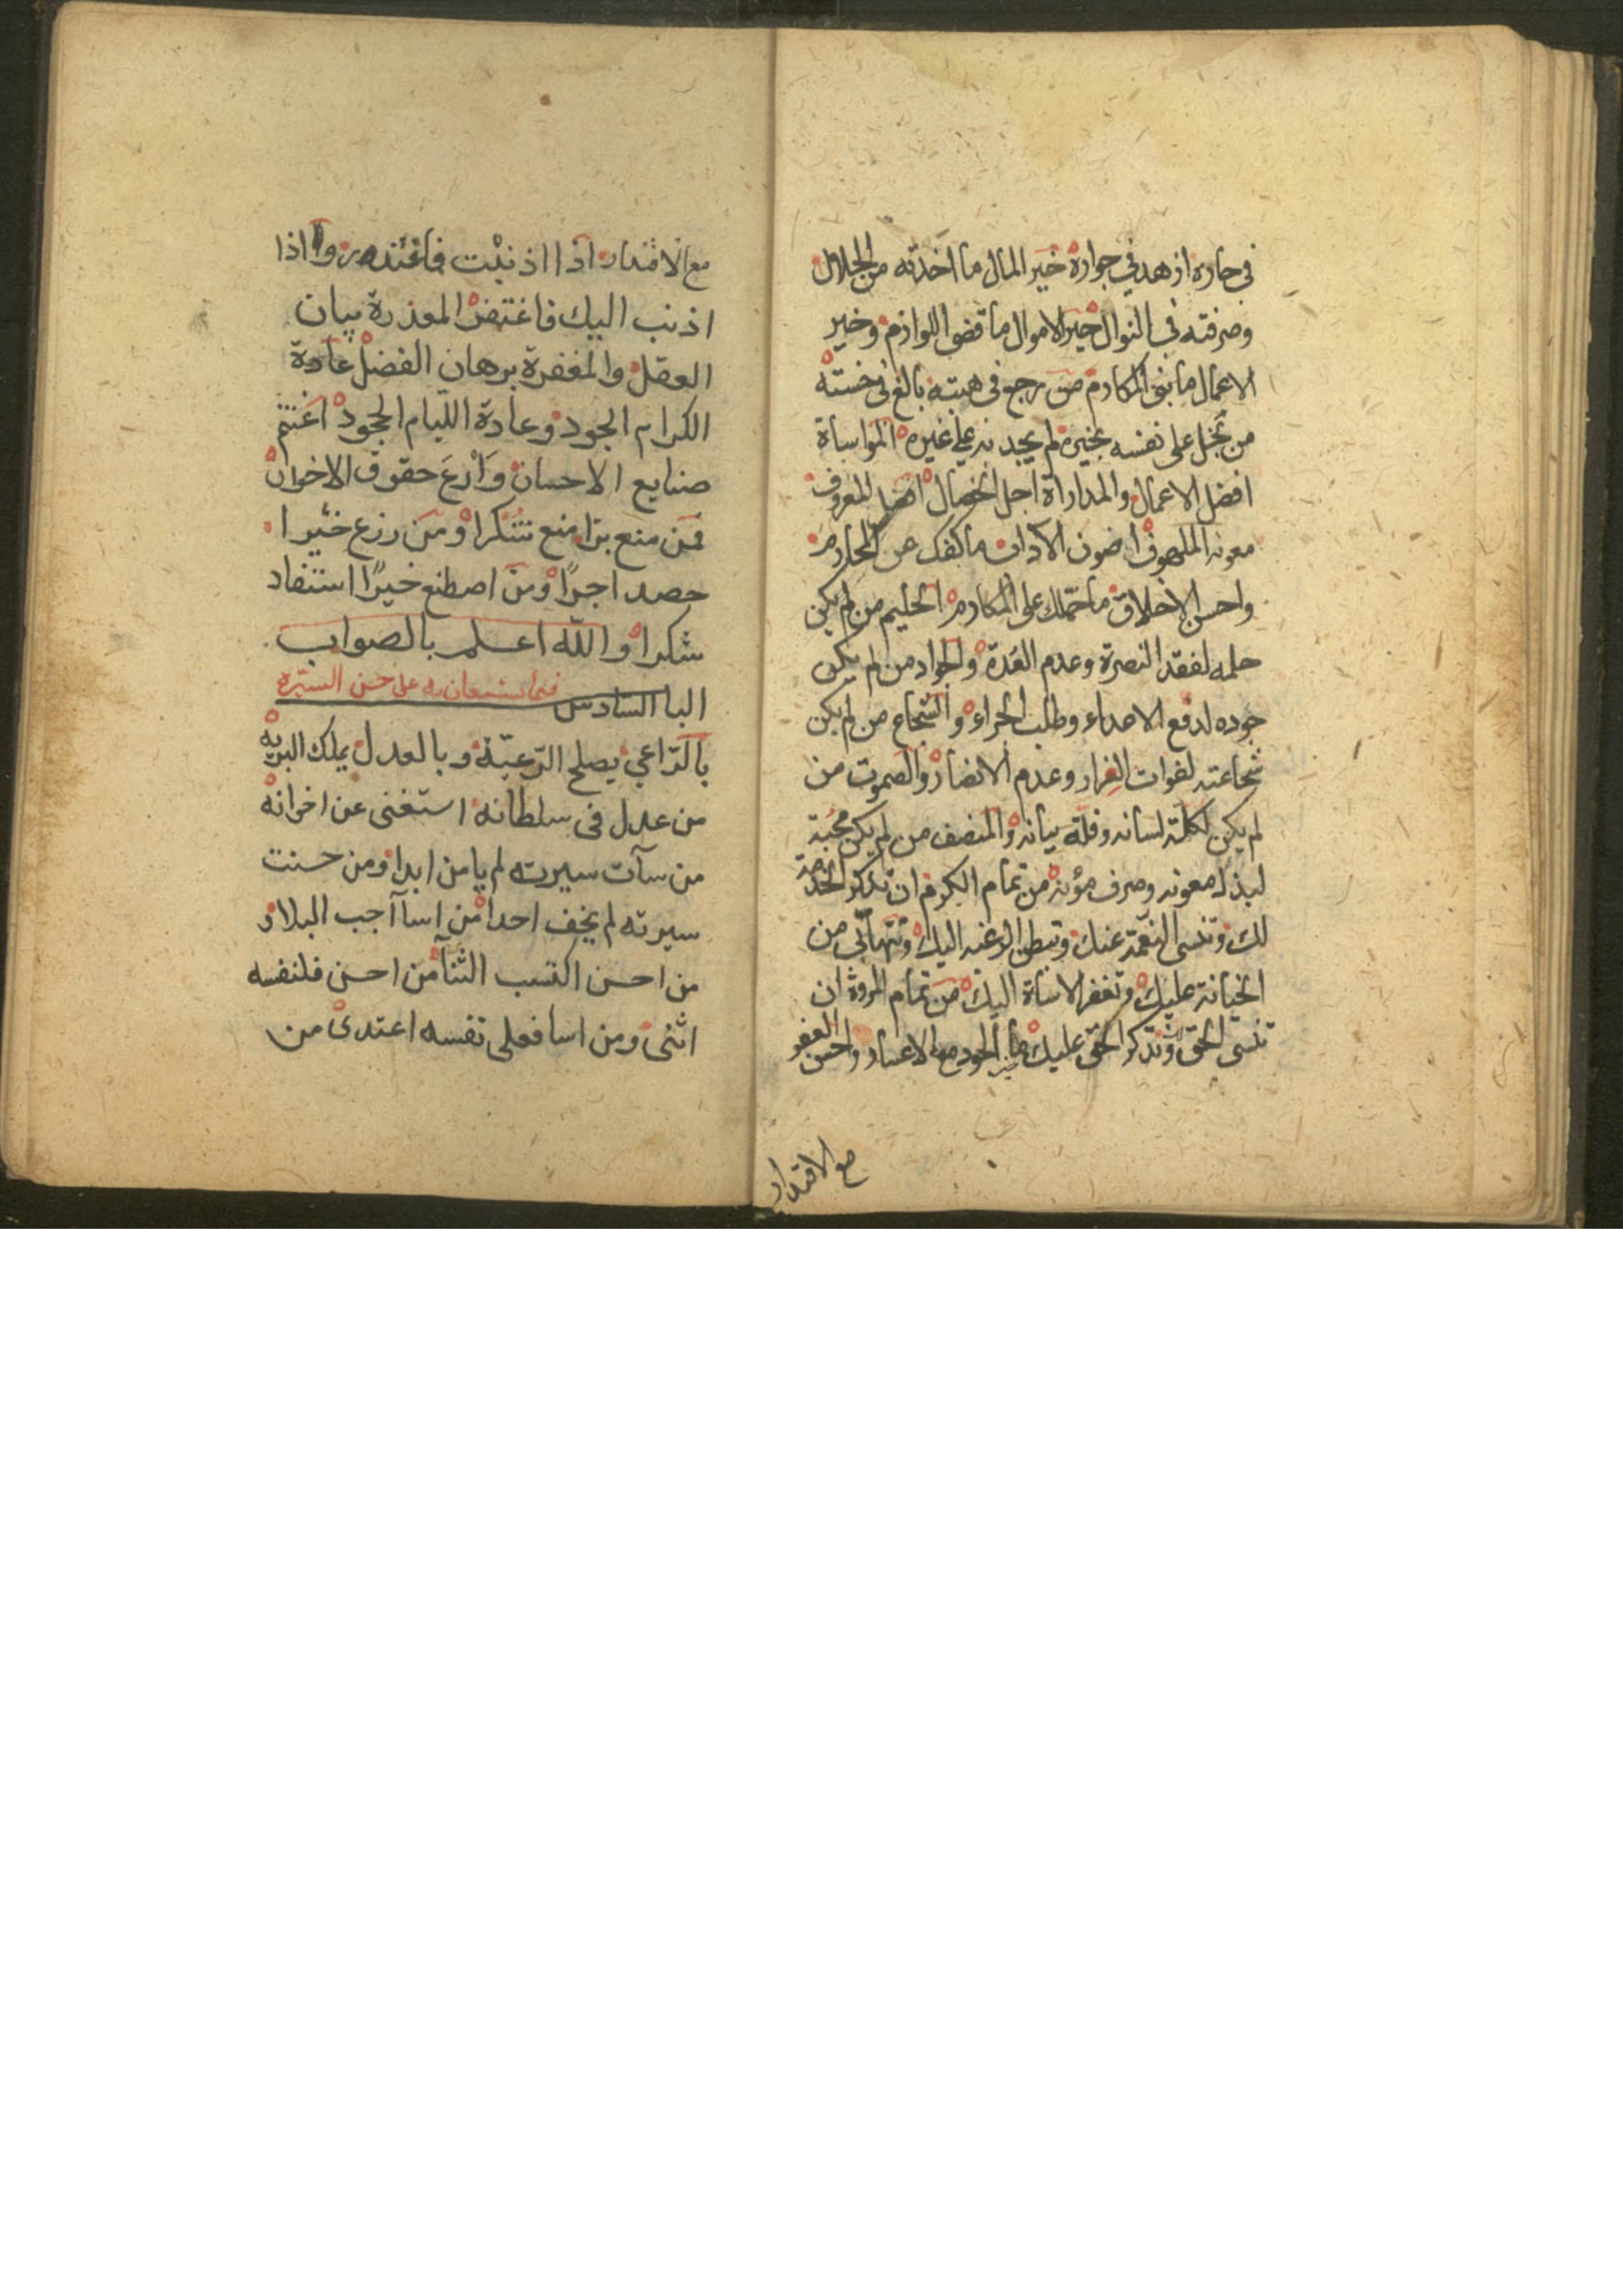 في جاره ازهد في جواره خير المال ما اخذته من الحلال
وصرفته في النوال خير الاموال ما قضى اللوازم وخير
الاعمال ما بنى المكارم من رجع في هبته بالغ في خسته
من بخل على نفسه بخيره لم يجد به على غيره المواساة
افضل الاعمال والمداراة اجل الخصال افضل المعروف
معونه الملهوف اصون الاداب ما كفك عن المحارم
واحسن الاخلاق ما حملك على المكارم الحليم من لم يكن
حلمه لفقد النصرة وعدم القدرة والجواد من لم يكن
جوده لدفع الاعداء وطلب الجزاء والشجاع من لم يكن
شجاعته لفوات الفرار وعدم الانصار والصموت من
لم يكن لكلة لسانه وقلة بيانه والمنصف من لم يكن محبة
لبذل معونه وصرف مؤنه من تمام الكرم ان تذكر الخدمة
لك وتنسى النعمة عنك وتبطن الرغبه اليك وتتهانى من
الخيانة عليك وتغفر الاساة اليك من تمام المروة ان
تنسى الحق لك وتذكر الحق عليك الجود مع الاعسار واحسن العفو
مع الاقتدار
مع الاقتدار اذا اذنبت فاعتذر واذا
اذنب اليك فاغتفر المعذرة بيان
العقل والمغفرة برهان الفضل عادة
الكرام الجود وعادة الليام الجحود اغتنم
صنايع الاحسان وارع حقوق الاخوان
فمن منع برا منع شكرا ومن زرع خيرا
حصد اجرًا ومن اصطنع خيرًا استفاد
شكرا والله اعلم بالصواب
البا السادس فيما يستعان به على حسن السيره
بالراعي يصلح الرعيّة وبالعدل يملك البريه
من عدل في سلطانه استغنى عن اخوانه
من سآت سيرته لم يامن ابدا ومن حسنت
سيرته لم يخف احدا من اسا آجب البلاد
من احسن اكتسب الثنا من احسن فلنفسه
اثنى ومن اسا فعلى نفسه اعتدى من